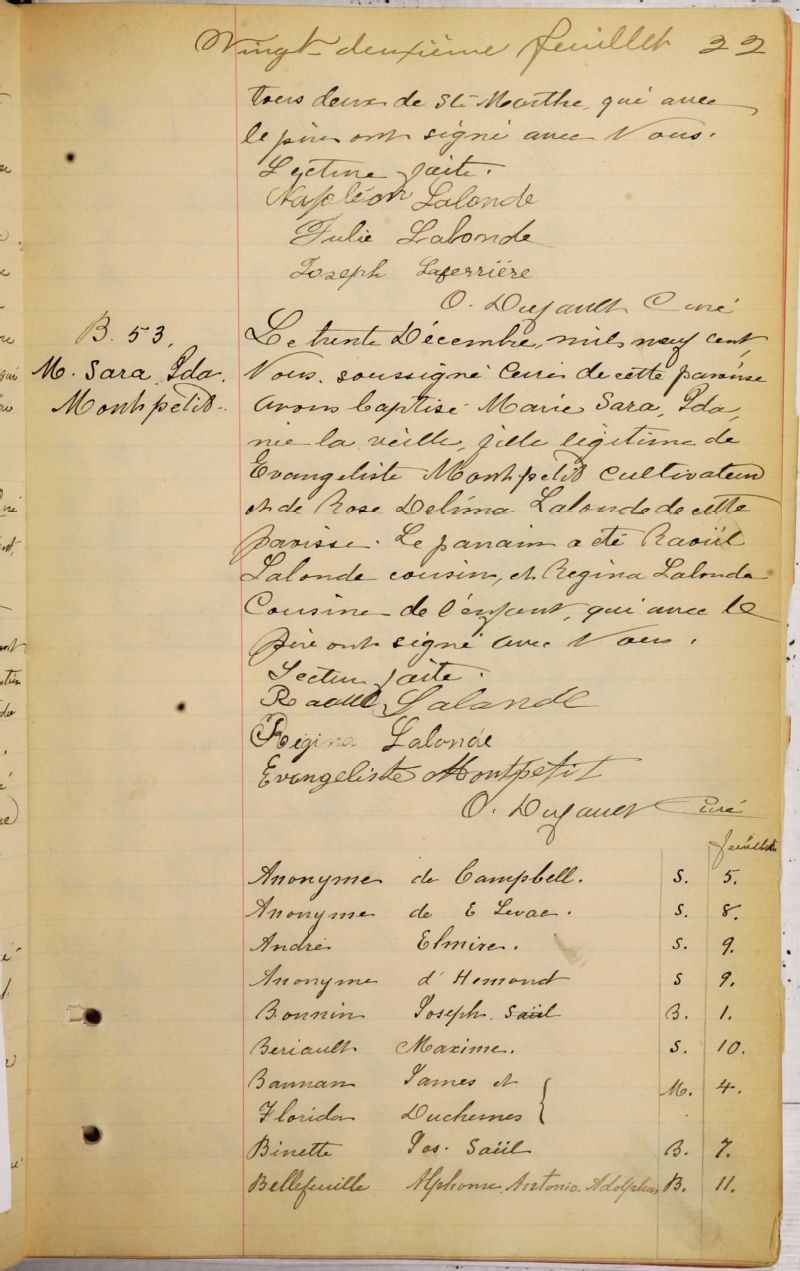 Vingt-deuxième feuillet 22
tous deux de Ste Marthe, qui avec
le père ont signé avec Nous.
Lecture faite.
Napoléon Lalonde
Julie Lalonde
Joseph Laferrière
O. Dufault Curé
B. 53.
M. Sara Ida.
Montpetit.
Le trente Décembre, mil neuf cent,
Nous soussigné Curé de cette paroisse
avons baptisé Marie Sara, Ida,
née la veille, fille légitime de
Evangeliste Montpetit cultivateur
et de Rose Delima Lalonde de cette
paroisse. Le parrain a été Raoül
Lalonde cousin, et Regina Lalonde
Cousine de l'enfant, qui avec le
père ont signé avec Nous.
Lecture faite.
Raoul Lalonde
Régina Lalonde
Evangeliste Montpetit
O. Dufault Curé
feuillet
Anonyme de Campbell. S. 5.
Anonyme de E Levac. S. 8.
André Elmire. S. 9.
Anonyme d'Hemond S 9.
Bonnin Joseph Saül B. 1.
Beriault Maxime. S. 10.
Bannan James et M. 4.
Florida Duchesnes
Binette Jos. Saül B. 7.
Bellefeuille Alphonse Antonio Adolphus B. 11.